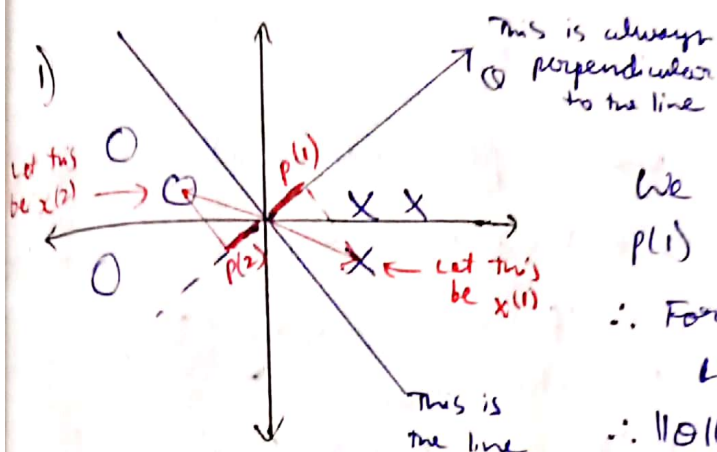 1)
This is always
perpendicular
to the line
θ
Let this
be x(2)
p(1)
p(2)
Let this
be x(1)
This is
the line
We
p(1)
∴ For
L
∴ ||θ||